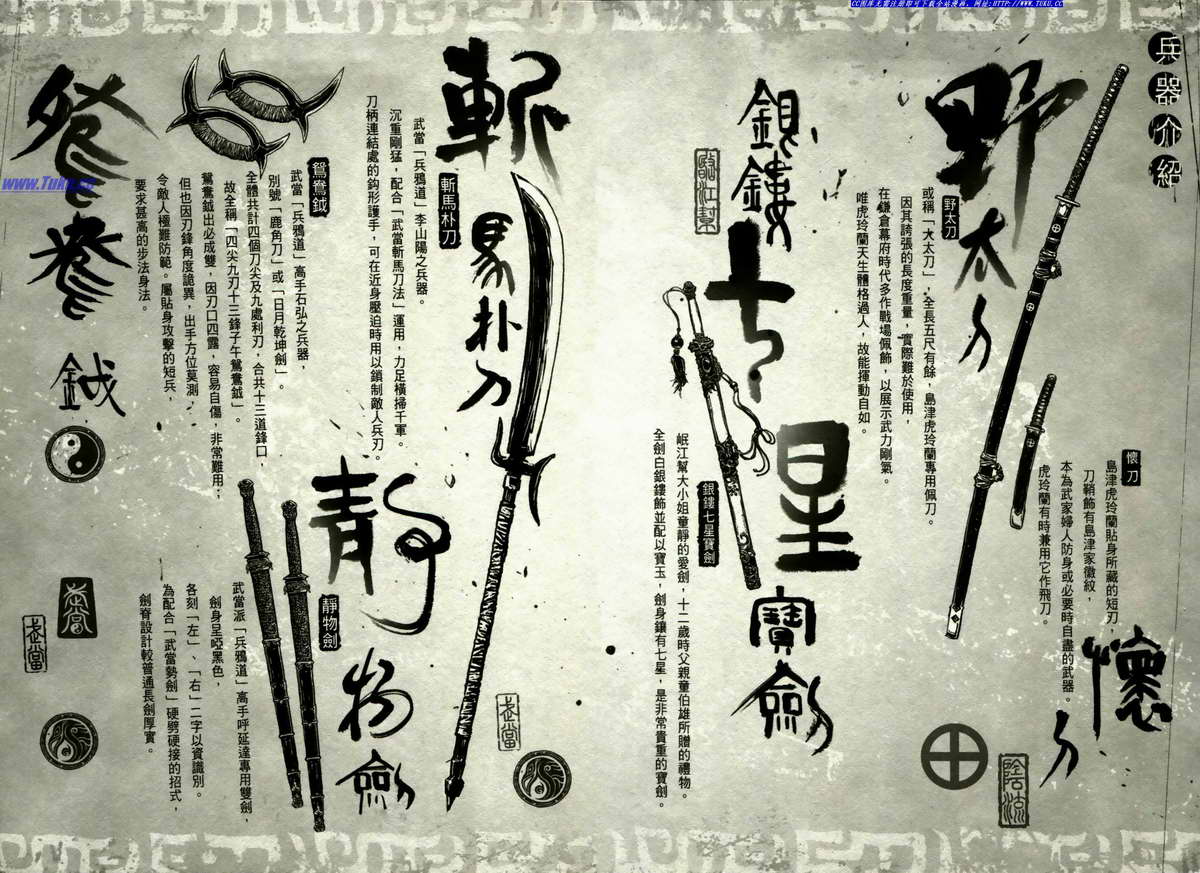 CC圖庫無需注冊即可下載全站漫画，网址:HTTP://WWW.TUKU.CC
兵器介紹
野太刀
野太刀
或稱「大太刀」，全長五尺有餘，島津虎玲蘭專用佩刀。
因其誇張的長度重量，實際難於使用，
在鎌倉幕府時代多作戰場佩飾，以展示武力剛氣。
唯虎玲蘭天生體格過人，故能揮動自如。
懷刀
懷刀
島津虎玲蘭貼身所藏的短刀，
刀鞘飾有島津家徽紋，
本為武家婦人防身或必要時自盡的武器。
虎玲蘭有時兼用它作飛刀。
陰流
銀鏤七星寶劍
岷江幫
銀鏤七星寶劍
岷江幫大小姐童靜的愛劍，十二歲時父親童伯雄所贈的禮物。
全劍白銀鏤飾並配以寶玉，劍身鑲有七星，是非常貴重的寶劍。
斬馬朴刀
斬馬朴刀
武當「兵鴉道」李山陽之兵器。
沉重剛猛，配合「武當斬馬刀法」運用，力足橫掃千軍。
刀柄連結處的鈎形護手，可在近身壓迫時用以鎖制敵人兵刃。
武當
鴛鴦鉞
鴛鴦鉞
武當「兵鴉道」高手石弘之兵器，
別號「鹿角刀」或「日月乾坤劍」。
全體共計四個刀尖及九處利刃，合共十三道鋒口，
故全稱「四尖九刃十三鋒子午鴛鴦鉞」。
鴛鴦鉞出必成雙，因刃口四露，容易自傷，非常難用；
但也因刃鋒角度詭異，出手方位莫測，
令敵人極難防範。屬貼身攻擊的短兵，
要求甚高的步法身法。
www.Tuku.cc
靜物劍
靜物劍
武當派「兵鴉道」高手呼延達專用雙劍，
劍身呈啞黑色，
各刻「左」、「右」二字以資識別。
為配合「武當勢劍」硬劈硬接的招式，
劍脊設計較普通長劍厚實。
武當
武當